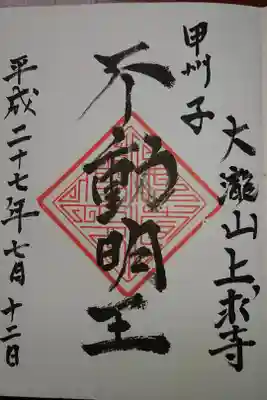 甲州子
大瀧山上求寺
不動明王
平成二十七年七月十二日